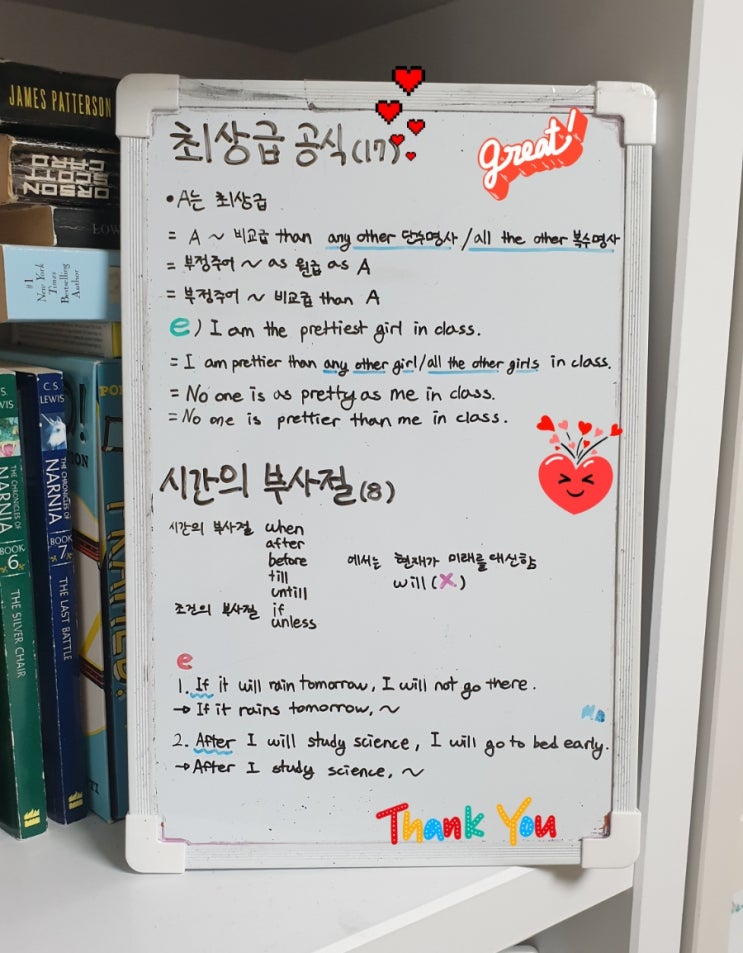 JAMES PATTERSON
ORSON
SCOTT
CARD
LOW
#1
New York
Times
Bestselling
Author
C.S.
LEWIS
THE CHRONICLES OF
NARNIA
BOOK
6
THE SILVER CHAIR
C.S.
LEWIS
THE CHRONICLES OF
NARNIA
BOOK
7
THE LAST BATTLE
최상급 공식(17)
great!
• A는 최상급
= A ~ 비교급 than any other 단수명사 / all the other 복수명사
= 부정주어 ~ as 원급 as A
= 부정주어 ~ 비교급 than A
e) I am the prettiest girl in class.
= I am prettier than any other girl/all the other girls in class.
= No one is as pretty as me in class.
= No one is prettier than me in class.
시간의 부사절(8)
시간의 부사절 when
after
before 에서는 현재가 미래를 대신함
till will (X)
untill
조건의 부사절 if
unless
e
1. If it will rain tomorrow, I will not go there.
→ If it rains tomorrow, ~
2. After I will study science, I will go to bed early.
→ After I study science, ~
Thank You